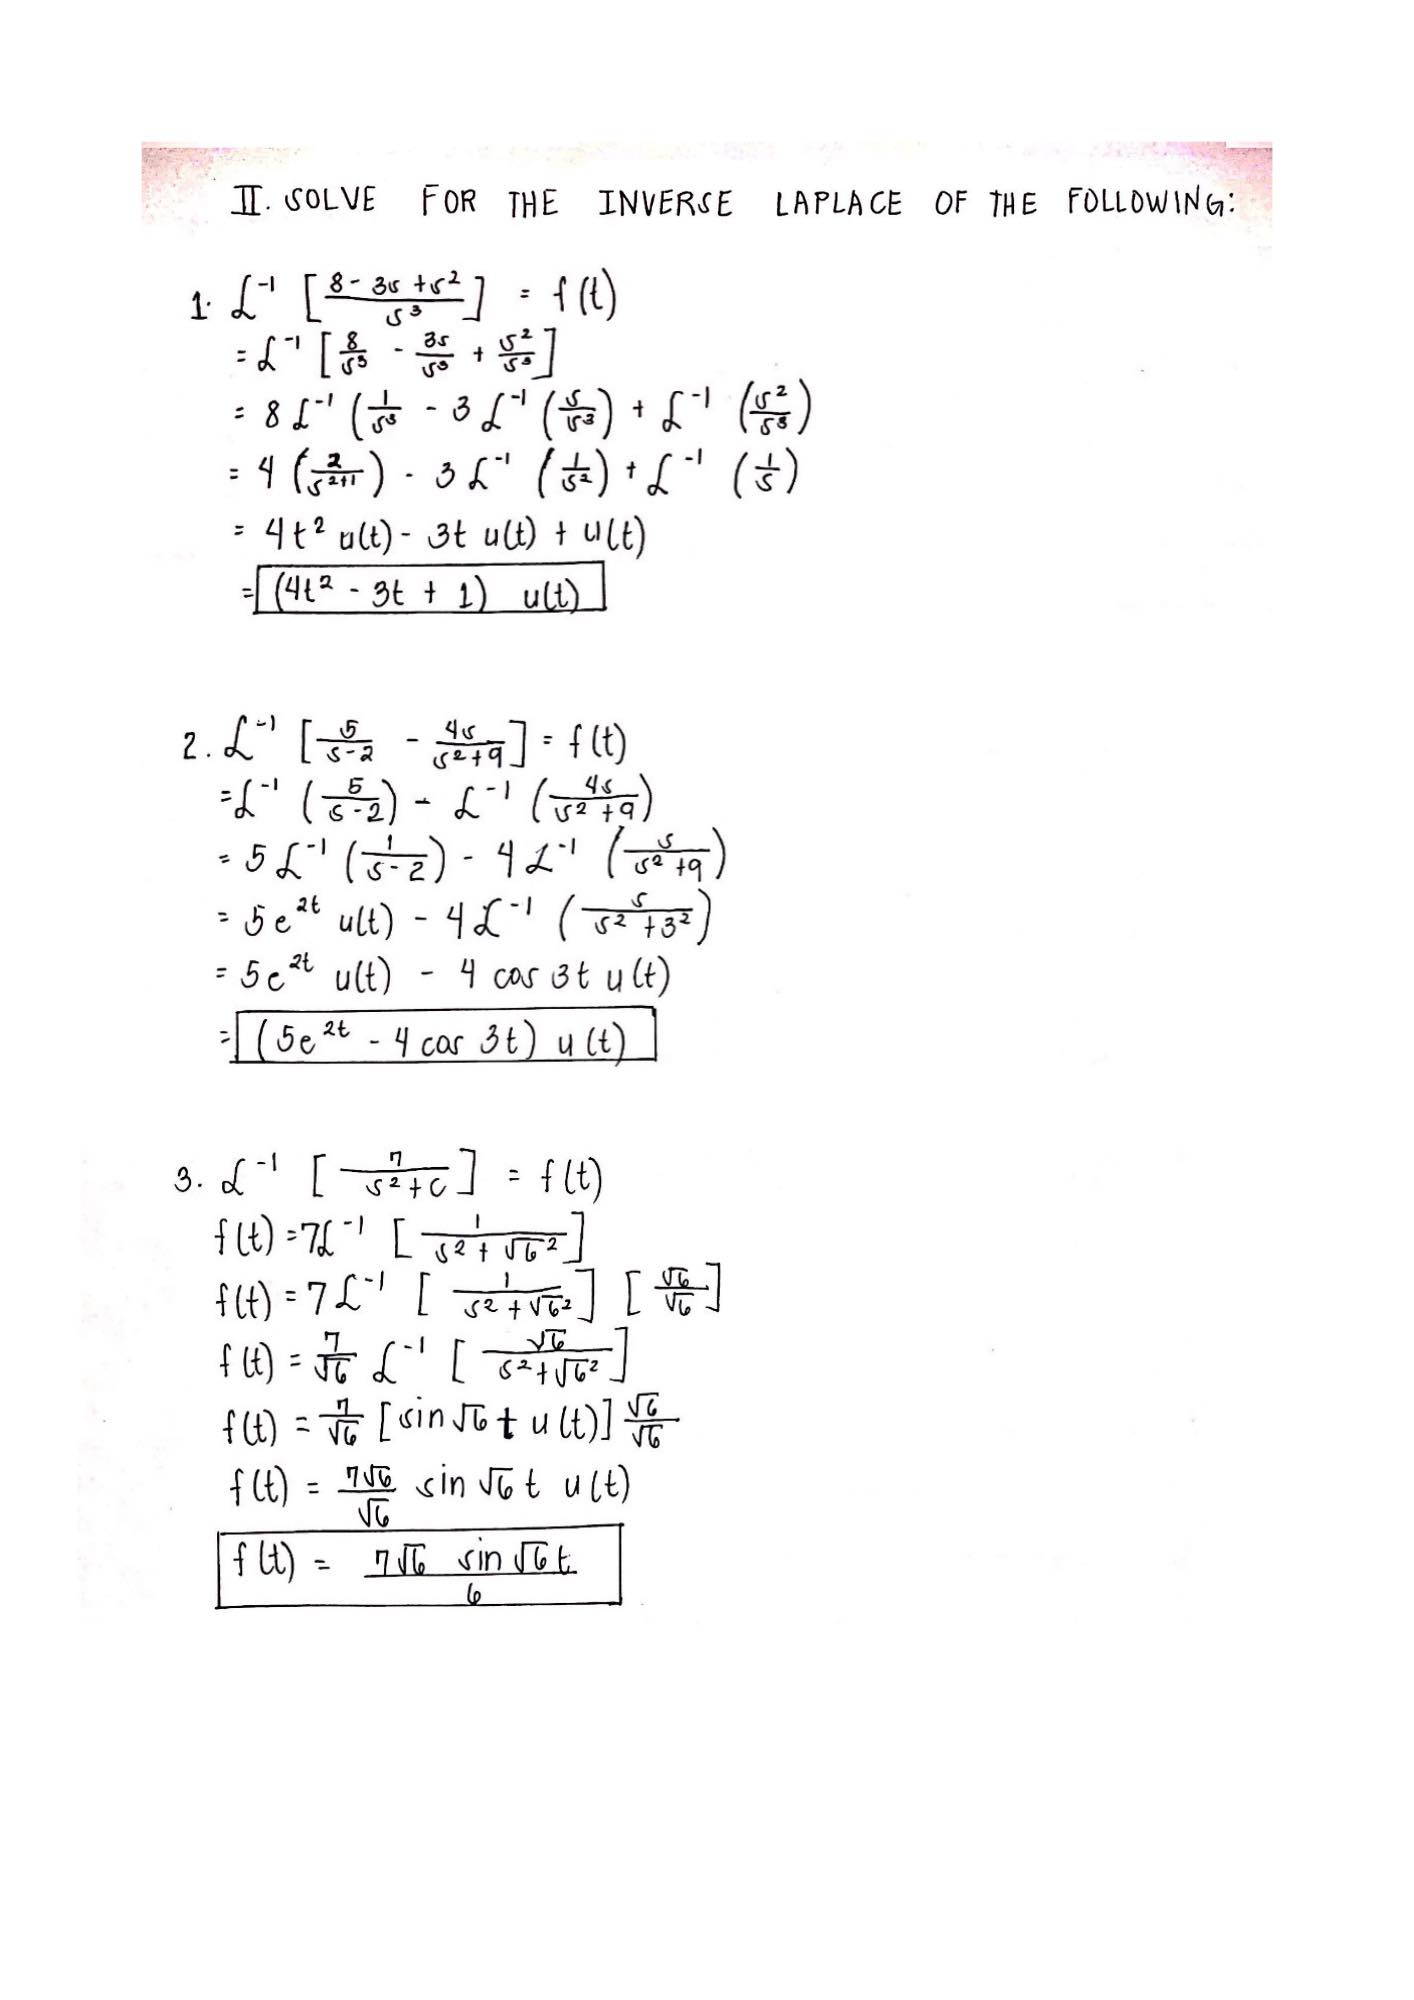 II. SOLVE FOR THE INVERSE LAPLACE OF THE FOLLOWING:
1. ℒ⁻¹ [(8 - 3s + s²)/s³] = f(t)
= ℒ⁻¹ [8/s³ - 3s/s³ + s²/s³]
= 8 ℒ⁻¹ (1/s³ - 3 ℒ⁻¹ (s/s³) + ℒ⁻¹ (s²/s³)
= 4 (2/s²⁺¹) - 3 ℒ⁻¹ (1/s²) + ℒ⁻¹ (1/s)
= 4t² u(t) - 3t u(t) + u(t)
= (4t² - 3t + 1) u(t)
2. ℒ⁻¹ [5/(s-2) - 4s/(s²+9)] = f(t)
= ℒ⁻¹ (5/(s-2)) - ℒ⁻¹ (4s/(s²+9))
= 5 ℒ⁻¹ (1/(s-2)) - 4 ℒ⁻¹ (s/(s²+9))
= 5e²ᵗ u(t) - 4 ℒ⁻¹ (s/(s²+3²))
= 5e²ᵗ u(t) - 4 cos 3t u(t)
= (5e²ᵗ - 4 cos 3t) u(t)
3. ℒ⁻¹ [7/(s²+6)] = f(t)
f(t) = 7ℒ⁻¹ [1/(s² + √6²)]
f(t) = 7 ℒ⁻¹ [1/(s² + √6²)] [√6/√6]
f(t) = 7/√6 ℒ⁻¹ [√6/(s² + √6²)]
f(t) = 7/√6 [sin √6 t u(t)] √6/√6
f(t) = 7√6/√6 sin √6 t u(t)
f(t) = 7√6 sin √6 t/6